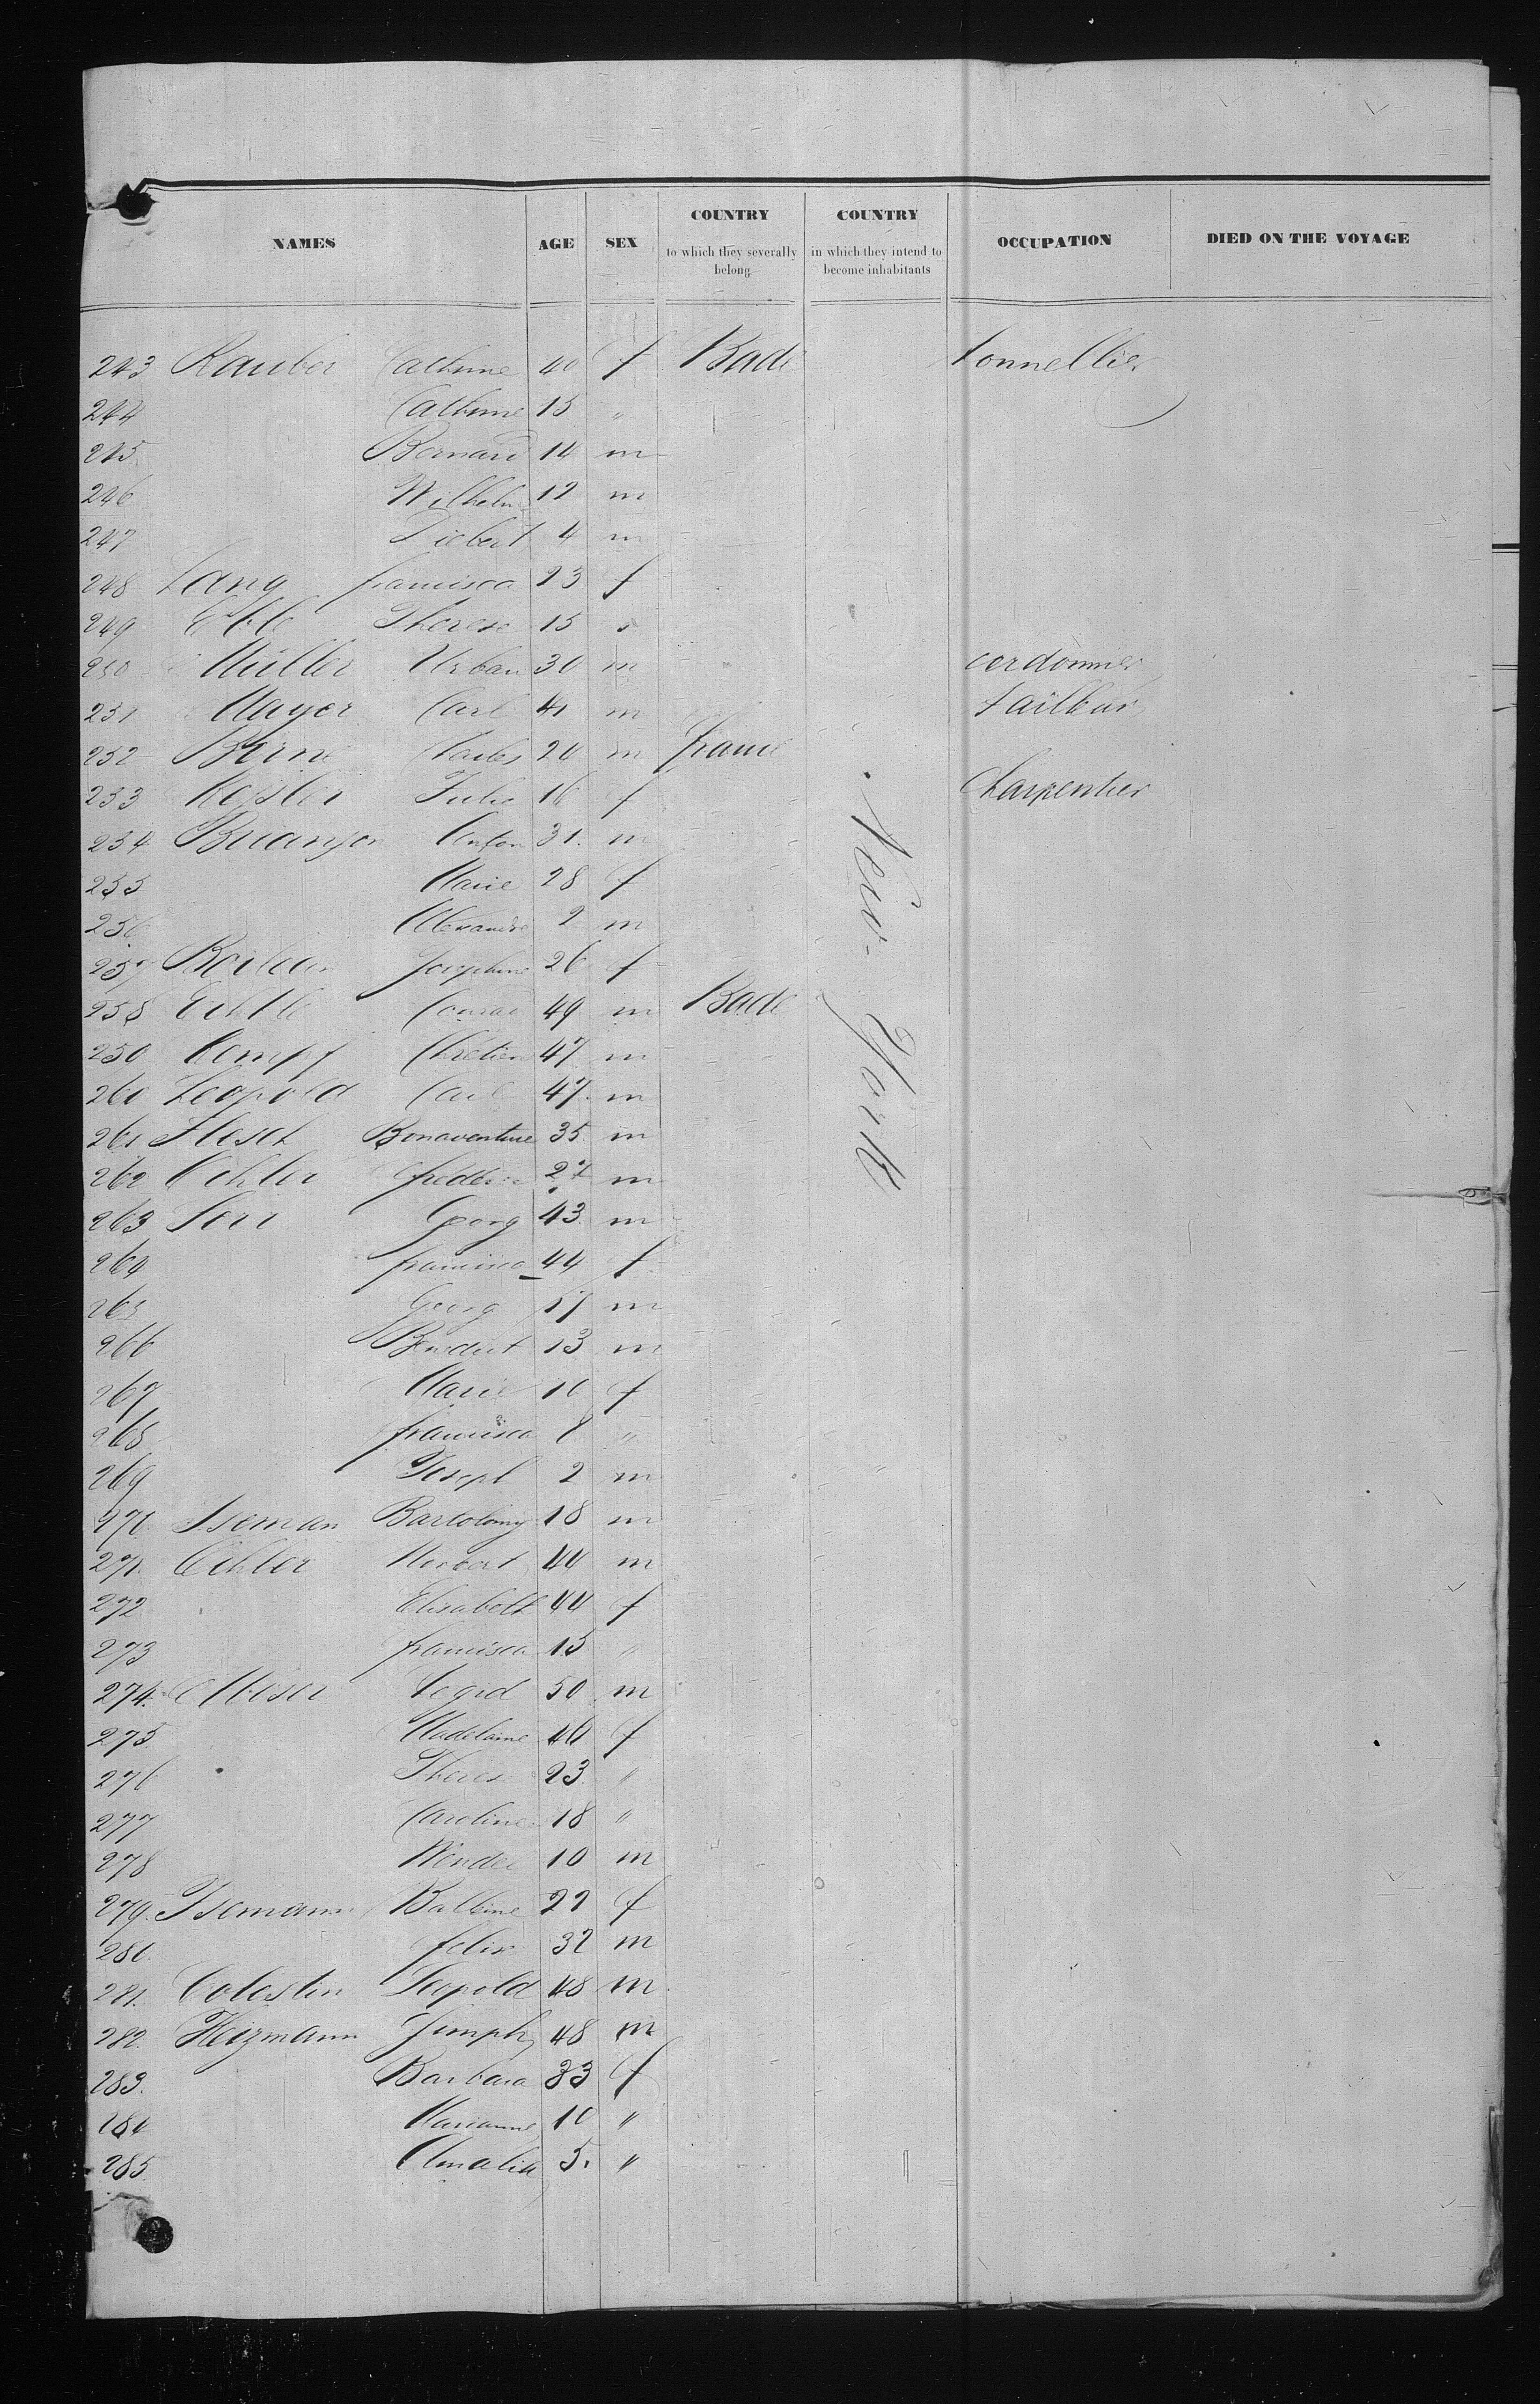 NAMES AGE SEX COUNTRY to which they severally belong COUNTRY in which they intend to become inhabitants OCCUPATION DIED ON THE VOYAGE
243 Rauber Catherine 40 f Bade tonnellier
244 Catherine 15 "
245 Bernard 14 m
246 Wilhelm 12 m
247 4 m
248 Lang francisca 23 f
249 Therese 15
250 Müller Urban 30 m cordonnier
251 Mayer Carl 41 m tailleur
252 Charles 20 m france
253 Julie 16 f charpentier
254 Briançon Anton 31. m
255 Marie 28 f
256 Alexandre 2 m
257 Josephine 26 f
258 Conrad 49 m Bade
259 Kempf Chretien 47 m
260 Leopold Carl 47. m
261 Flesch Bonaventure 35. m
262 frederic 27 m
263 Georg 43. m
264 francisca 44 f
265 Georg 17 m
266 Benedict 13 m
267 Marie 10 f
268 francisca 8 "
269 Joseph 2 m
270 Iseman Bartolomy 18 m
271. 44 m
272 Elisabeth 44 f
273 francisca 15 "
274. Moser 50 m
275. Madelaine 46 f
276 Therese 23 "
277 Caroline 18 "
278 10 m
279. Isemann Balbine 22 f
280. felix 32 m
281. Colestin Leopold 48 m
282. Heizmann 48 m
283. Barbara 33 f
284 Marianne 10 "
285. Amalia 5. "
New-York